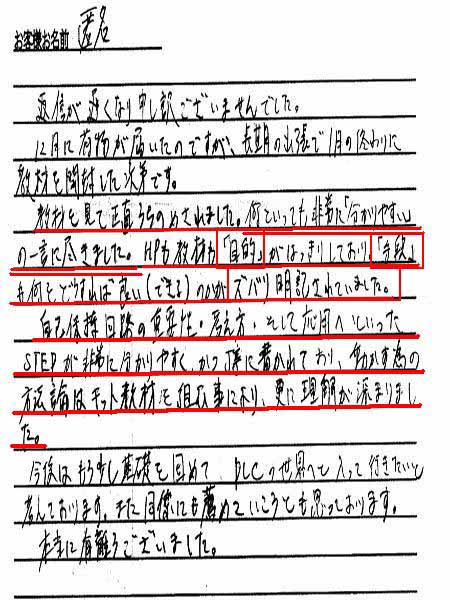 お客様お名前 匿名
返信が遅くなり申し訳ございませんでした。
12月に荷物が届いたのですが、長期の出張で1月の終わりに
教材を開封した次第です。
教材を見て正直うちのめされました。何といっても非常に「分かりやすい」
の一言に尽きました。HPも教材も「目的」がはっきりしており、「手続」
も何をどうすれば良い(できる)のかがズバリ明記されていました。
自己保持回路の重要性・考え方、そして応用へといった
STEPが非常に分かりやすく、かつ丁寧に書かれており、動かす為の
方法論はキット教材を組む事により、更に理解が深まりまし
た。
今後はもう少し基礎を固めて、PLCの世界へと入って行きたいと
考えております。また同僚にも薦めていこうとも思っております。
本当に有難うございました。